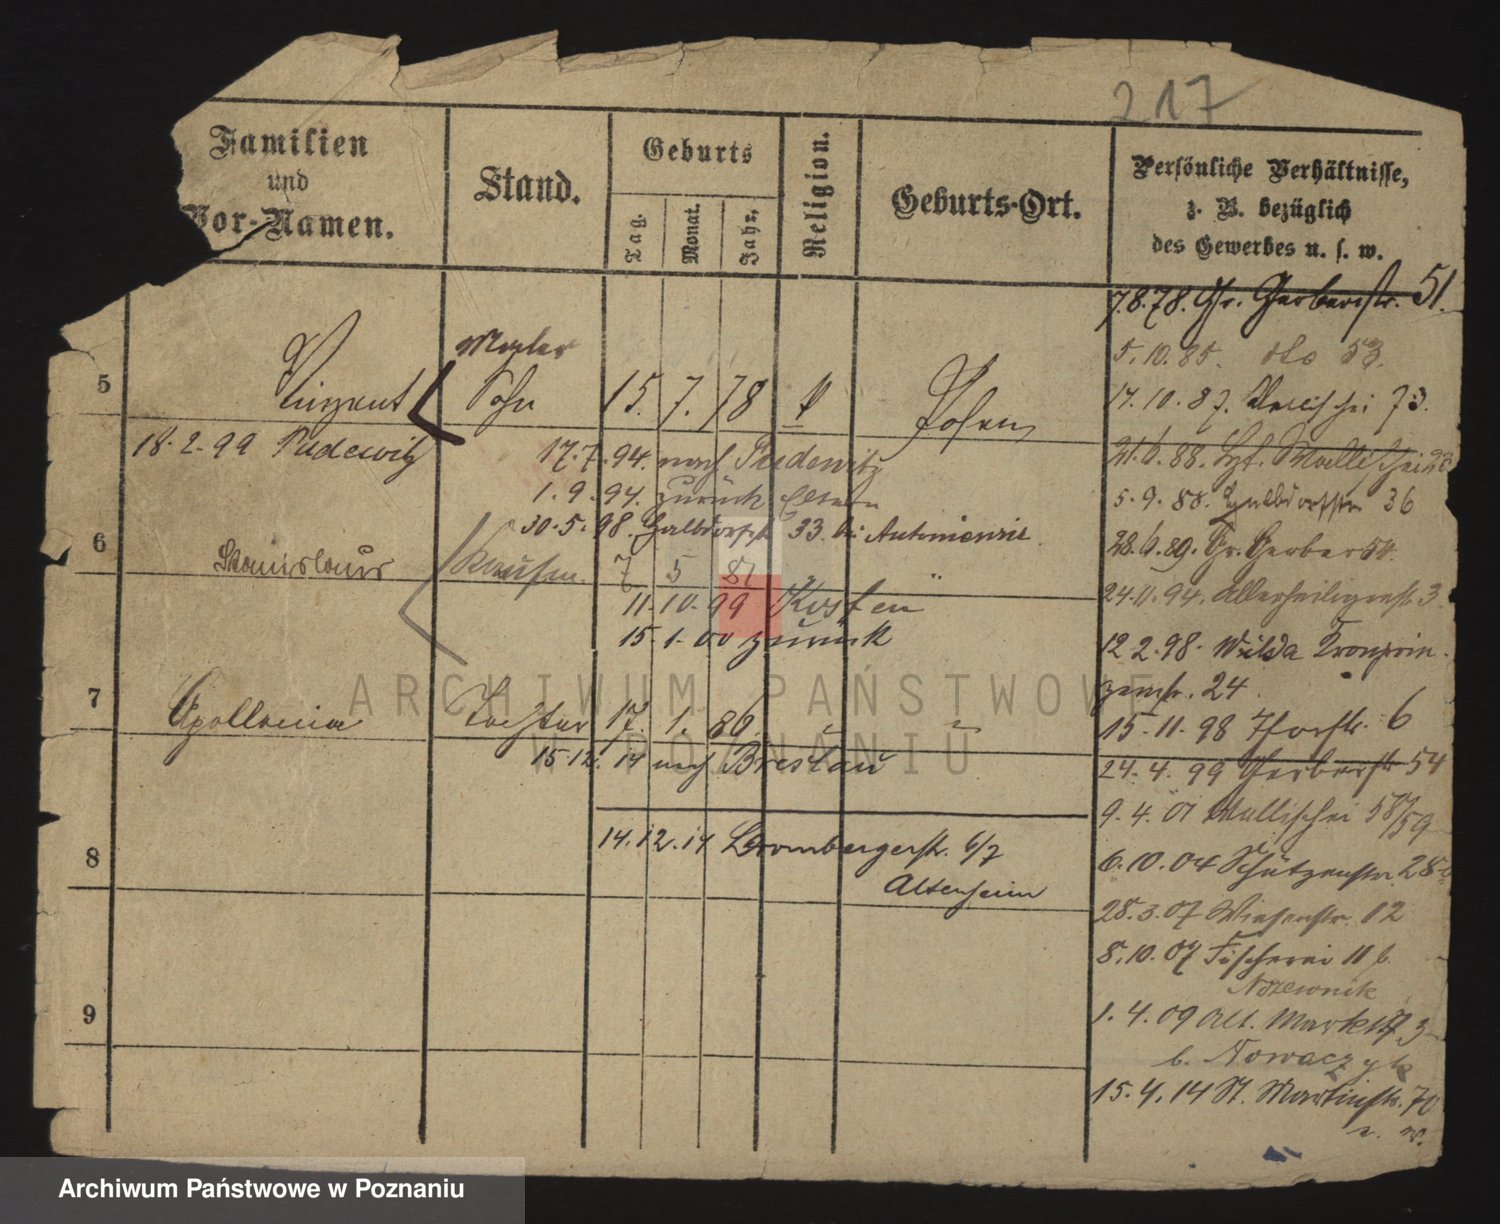 217
Familien
und
Vor-Namen.
Stand.
Geburts
Tag.
Monat.
Jahr.
Religion.
Geburts-Ort.
Persönliche Verhältnisse,
z. B. bezüglich
des Gewerbes u. s. w.
7.8.78. Gr. Gerberstr. 51.
5.10.85. dto 53.
5 Vinzent Sohn 15. 7. 78 Posen
17.10.87. Wallischei 73.
18.2.99 Pudewitz
17.7.94. nach Pudewitz
21.6.88. Wallischei
1.9.94. zurück Eltern
5.9.88. Halbdorfstr. 36
30.5.98. Halbdorfstr. 33. bei
6
28.6.89. Gr. Gerber 54.
Stanislaus 7 5 81 "
24.11.94. Allerheiligenstr. 3.
11.10.99 Kosten
15.1.00 zurück
12.2.98. Wilda Kronprin-
zenstr. 24.
7 Apollonia Tochter 17 1. 86.
15.11.98 Thorstr. 6
15.12.14 nach Breslau
24.4.99 Gerberstr. 54
9.4.01 Wallischei 58/59
8
14.12.14 Brombergerstr. 6/7
Altenheim
6.10.04 Schützenstr. 28
28.3.07 Wiesenstr. 12
8.10.07 Fischerei 11 b.
9
1.4.09 Alt. Markt
b. Nowaczyk
15.4.14 St. Martinstr. 70
ARCHIWUM PAŃSTWOWE
W POZNANIU
Archiwum Państwowe w Poznaniu